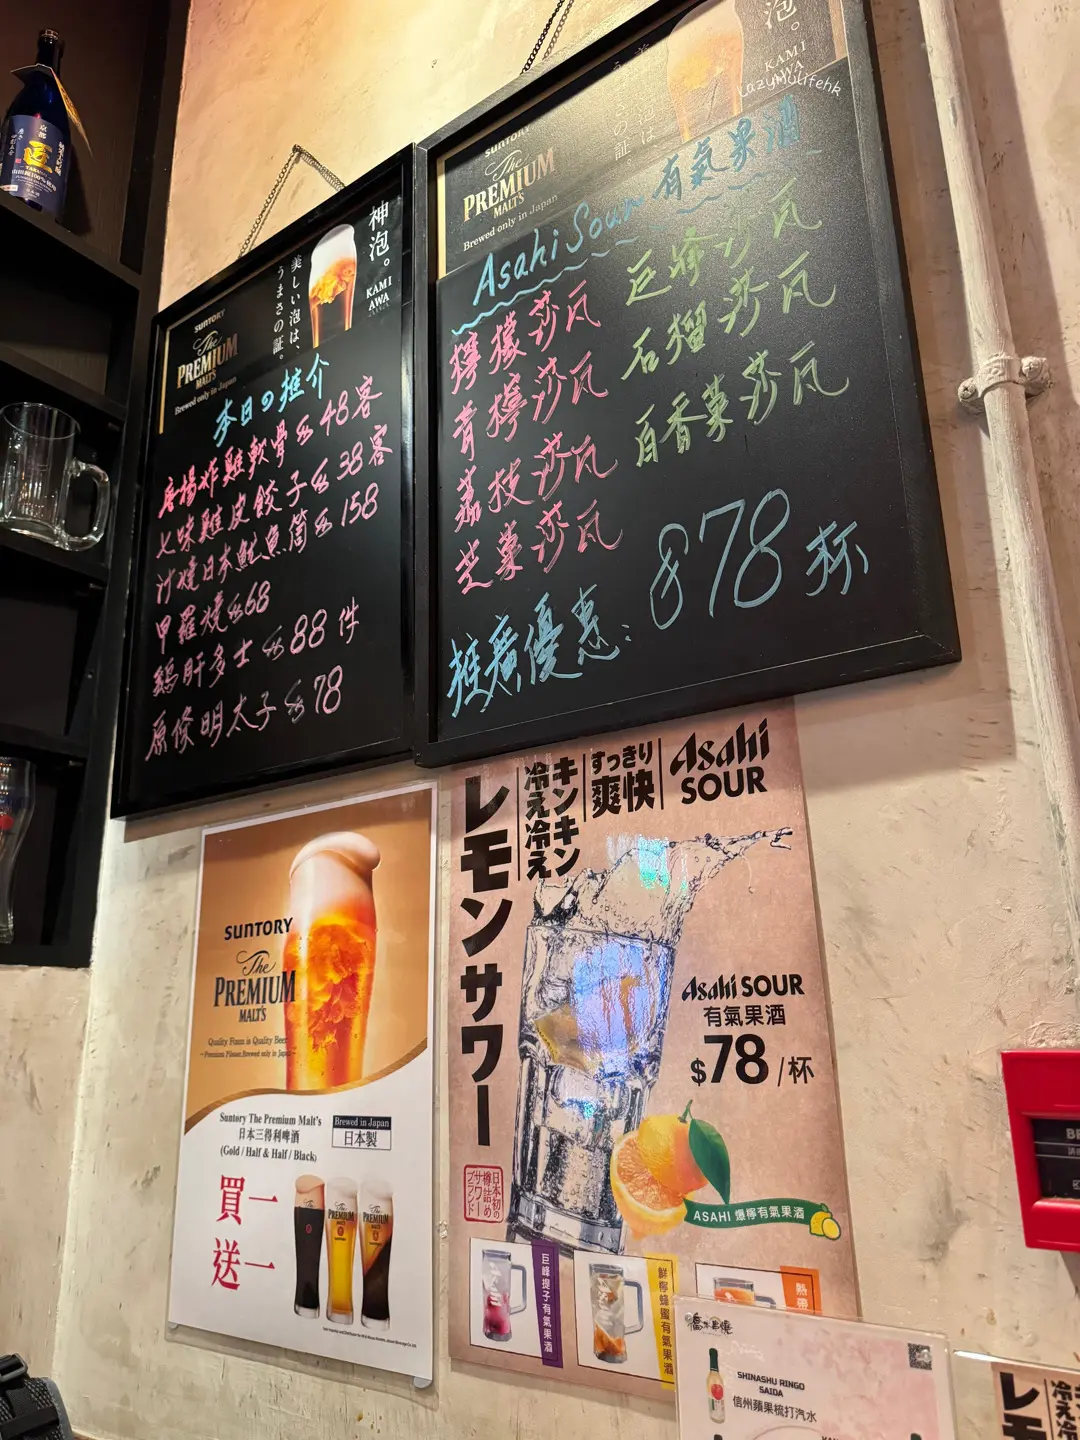 京都
匠
神泡。
美しい泡は、
うまさの証。
KAMI
AWA
SUNTORY
The
PREMIUM
MALT'S
Brewed only in Japan
本日の推介
唐揚炸雞軟骨$48客
七味雞皮餃子$38客
汁燒日本魷魚筒$158
甲羅燒$68
鵝肝多士$88件
原條明太子$78
泡。
KAMI
AWA
Lazymulifehk
SUNTORY
The
PREMIUM
MALT'S
Brewed only in Japan
Asahi Sour 有氣果酒
檸檬莎瓦
青檸莎瓦
荔枝莎瓦
芝菓莎瓦
巨峰莎瓦
石榴莎瓦
百香菓莎瓦
推廣優惠: $78杯
SUNTORY
The
PREMIUM
MALT'S
Quality Foam is Quality Beer
~Premium Pilsner. Brewed only in Japan~
Suntory The Premium Malt's
日本三得利啤酒
(Gold / Half & Half / Black)
Brewed in Japan
日本製
買一
送一
レモンサワー
キンキン
冷え冷え
すっきり
爽快
Asahi
SOUR
Asahi SOUR
有氣果酒
$78 /杯
日本初の
樽詰め
サワー
ブランド
ASAHI 爆檸有氣果酒
巨峰提子有氣果酒
鮮檸蜂蜜有氣果酒
熱帶
SHINASHU RINGO
SAIDA
信州蘋果梳打汽水
レモ
冷え冷